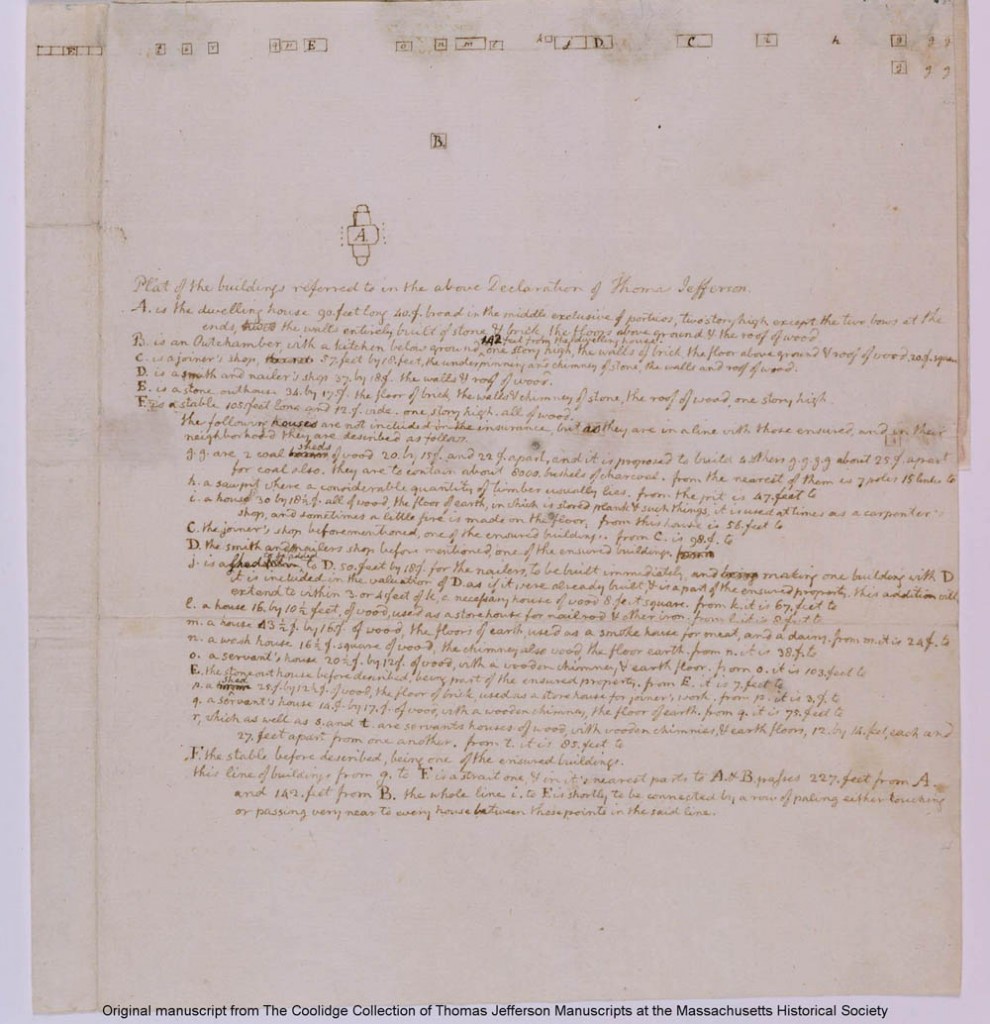 F. t s r q p E o n m l k j D C i h g g g
g g g
B.
A.
Plat of the buildings referred to in the above Declaration of Thomas Jefferson.
A. is the dwelling house 90. feet long 40. f. broad in the middle exclusive of porticos, two story high except the two bows at the
ends, the walls entirely built of stone & brick, the floors above ground & the roof of wood.
B. is an Outchamber, with a kitchen below ground, 142 feet from the dwelling house, one story high, the walls of brick the floor above ground & roof of wood. 20. f. square
C. is a joiner's shop, 57 feet by 18. feet, the underpinning and chimney of stone, the walls and roof of wood.
D. is a smith and nailer's shop 37. by 18 f. the walls & roof of wood.
E. is a stone outhouse 34. by 17 f. the floor of brick the walls & chimney of stone, the roof of wood, one story high.
F. is a stable 105. feet long and 12. f. wide. one story high. all of wood.
the following houses are not included in the insurance, but as they are in a line with those ensured, and in their
neighborhood they are described as follows.
g. g. are 2 coal sheds of wood 20. by 15 f. and 22 f. apart, and it is proposed to build 4. others g. g. g. g about 25. f. apart
for coal also. they are to contain about 8000. bushels of charcoal. from the nearest of them is 7 poles 15 links to
h. a saw pit where a considerable quantity of timber usually lies. from the pit is 47. feet to
i. a house 30 by 18 ½ f. all of wood, the floor of earth, in which is stored plank & such things, it is used at times as a carpenter's
shop, and sometimes a little fire is made on the floor. from this house is 56. feet to
C. the joiner's shop beforementioned, one of the ensured buildings. from C. is 98. f. to
D. the smith and nailers shop before mentioned, one of the ensured buildings.
j. is a shed to be added to D. 50. feet by 18 f. for the nailers, to be built immediately, and making one building with D
it is included in the valuation of D. as if it were already built, & is a part of the ensured property. this addition will
extend to within 3. or 4 feet of k, a necessary house of wood 8 feet square. from k. it is 67. feet to
l. a house 16. by 10 ½ feet, of wood, used as a storehouse for nailrod & other iron. from l. it is 8 feet to
m. a house 43 ½ f. by 16 f. of wood, the floors of earth, used as a smoke house for meat, and a dairy. from m. it is 24 f. to
n. a wash house 16 ½ f. square of wood, the chimney also wood, the floor earth. from n. it is 38 f. to
o. a servant's house 20 ½ f. by 12 f. of wood, with a wooden chimney, & earth floor. from o. it is 103 feet to
E. the stone out house before described, being part of the ensured property. from E. it is 7. feet to
p. a shed 25. f. by 12 ½ f. of wood, the floor of brick, used as a storehouse for joiner's work. from p. it is 3. f. to
q. a servant's house 14. f. by 17. f. of wood, with a wooden chimney, the floor of earth. from q. it is 75. feet to
r, which as well as s. and t. are servants houses of wood, with wooden chimnies, & earth floors, 12. by 14. feet, each and
27. feet apart from one another. from t. it is 85. feet to
F. the stable before described, being one of the ensured buildings.
this line of buildings from g. to F is a strait one, & in it's nearest parts to A. & B. passes 227. feet from A.
and 142. feet from B. the whole line i. to F is shortly to be connected by a row of paling either touching
or passing very near to every house between these points in the said line.
Original manuscript from The Coolidge Collection of Thomas Jefferson Manuscripts at the Massachusetts Historical Society